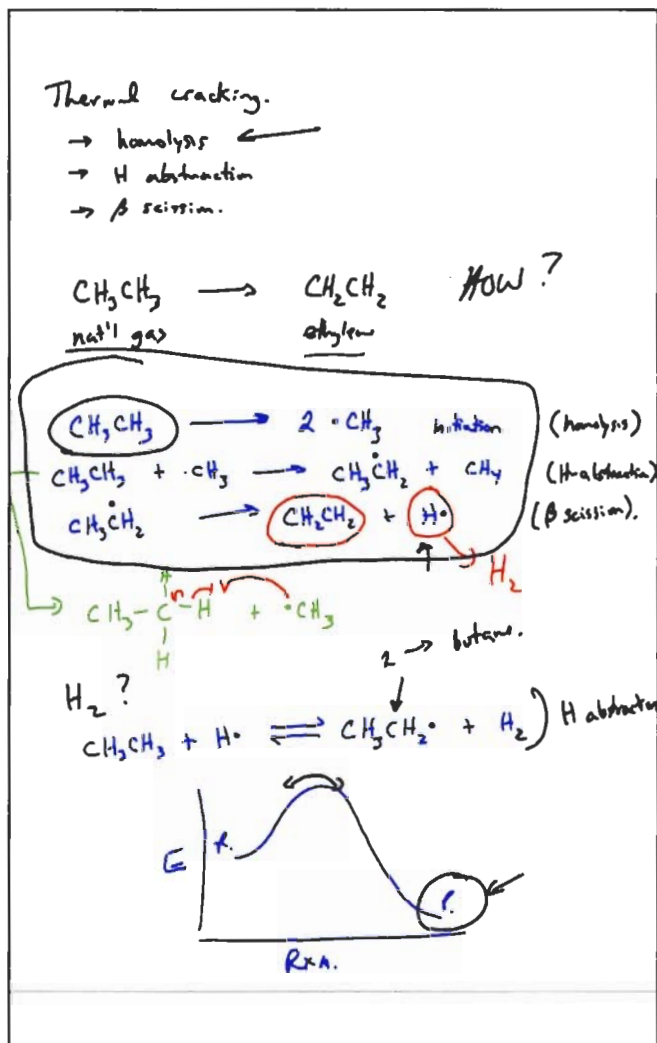 Thermal cracking.
→ homolysis ←
→ H abstraction
→ β scission.
CH₃CH₃ → CH₂CH₂ HOW?
nat'l gas ethylene
CH₃CH₃ → 2 ·CH₃ initiation (homolysis)
CH₃CH₃ + ·CH₃ → CH₃ĊH₂ + CH₄ (H-abstraction)
CH₃ĊH₂ → CH₂CH₂ + H· (β scission).
H₂
H
CH₃-C-H + ·CH₃
H
2 → butane.
H₂?
CH₃CH₃ + H· ⇌ CH₃CH₂· + H₂ ) H abstraction
E R. P.
Rxn.